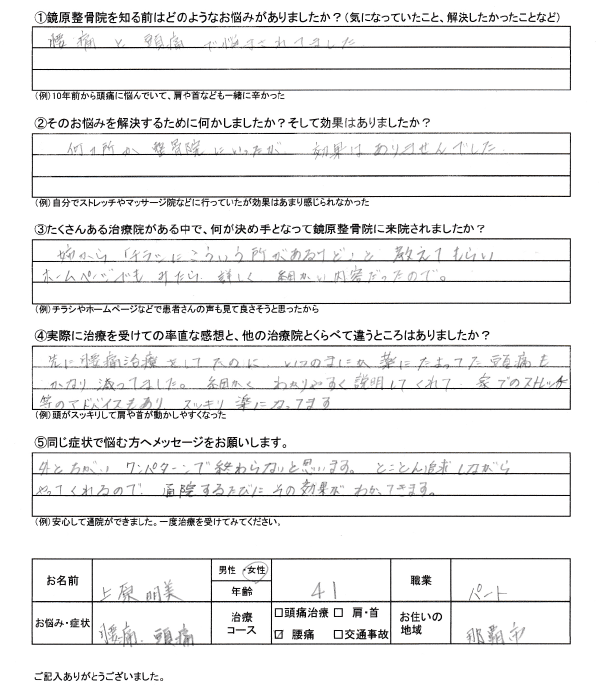 ①鏡原整骨院を知る前はどのようなお悩みがありましたか？(気になっていたこと、解決したかったことなど)
腰痛と頭痛で悩まされてました
(例)10年前から頭痛に悩んでいて、肩や首なども一緒に辛かった
②そのお悩みを解決するために何かしましたか？そして効果はありましたか？
何ヶ所か整骨院にいったが、効果はありませんでした
(例)自分でストレッチやマッサージ院などに行っていたが効果はあまり感じられなかった
③たくさんある治療院がある中で、何が決め手となって鏡原整骨院に来院されましたか？
姉から「チラシにこういう所があるけど」と教えてもらい
ホームページでもみたら詳しく細かい内容だったので。
(例)チラシやホームページなどで患者さんの声も見て良さそうと思ったから
④実際に治療を受けての率直な感想と、他の治療院とくらべて違うところはありましたか？
先に腰痛治療をしてたのに、いつのまにか薬にたよってた頭痛も
かなり減ってました。細かくわかりやすく説明してくれて、家でのストレッチ
等のアドバイスもあり、スッキリ楽になってます
(例)頭がスッキリして肩や首が動かしやすくなった
⑤同じ症状で悩む方へメッセージをお願いします。
外とちがい ワンパターンで終わらないと思います。とことん追求しながら
やってくれるので、通院するたびにその効果がわかってきます。
(例)安心して通院ができました。一度治療を受けてみてください。
お名前 上原 明美 男性・女性 年齢 41 職業 パート
お悩み・症状 腰痛、頭痛 治療コース □頭痛治療 □肩・首 ☑腰痛 □交通事故 お住いの地域 那覇市
ご記入ありがとうございました。